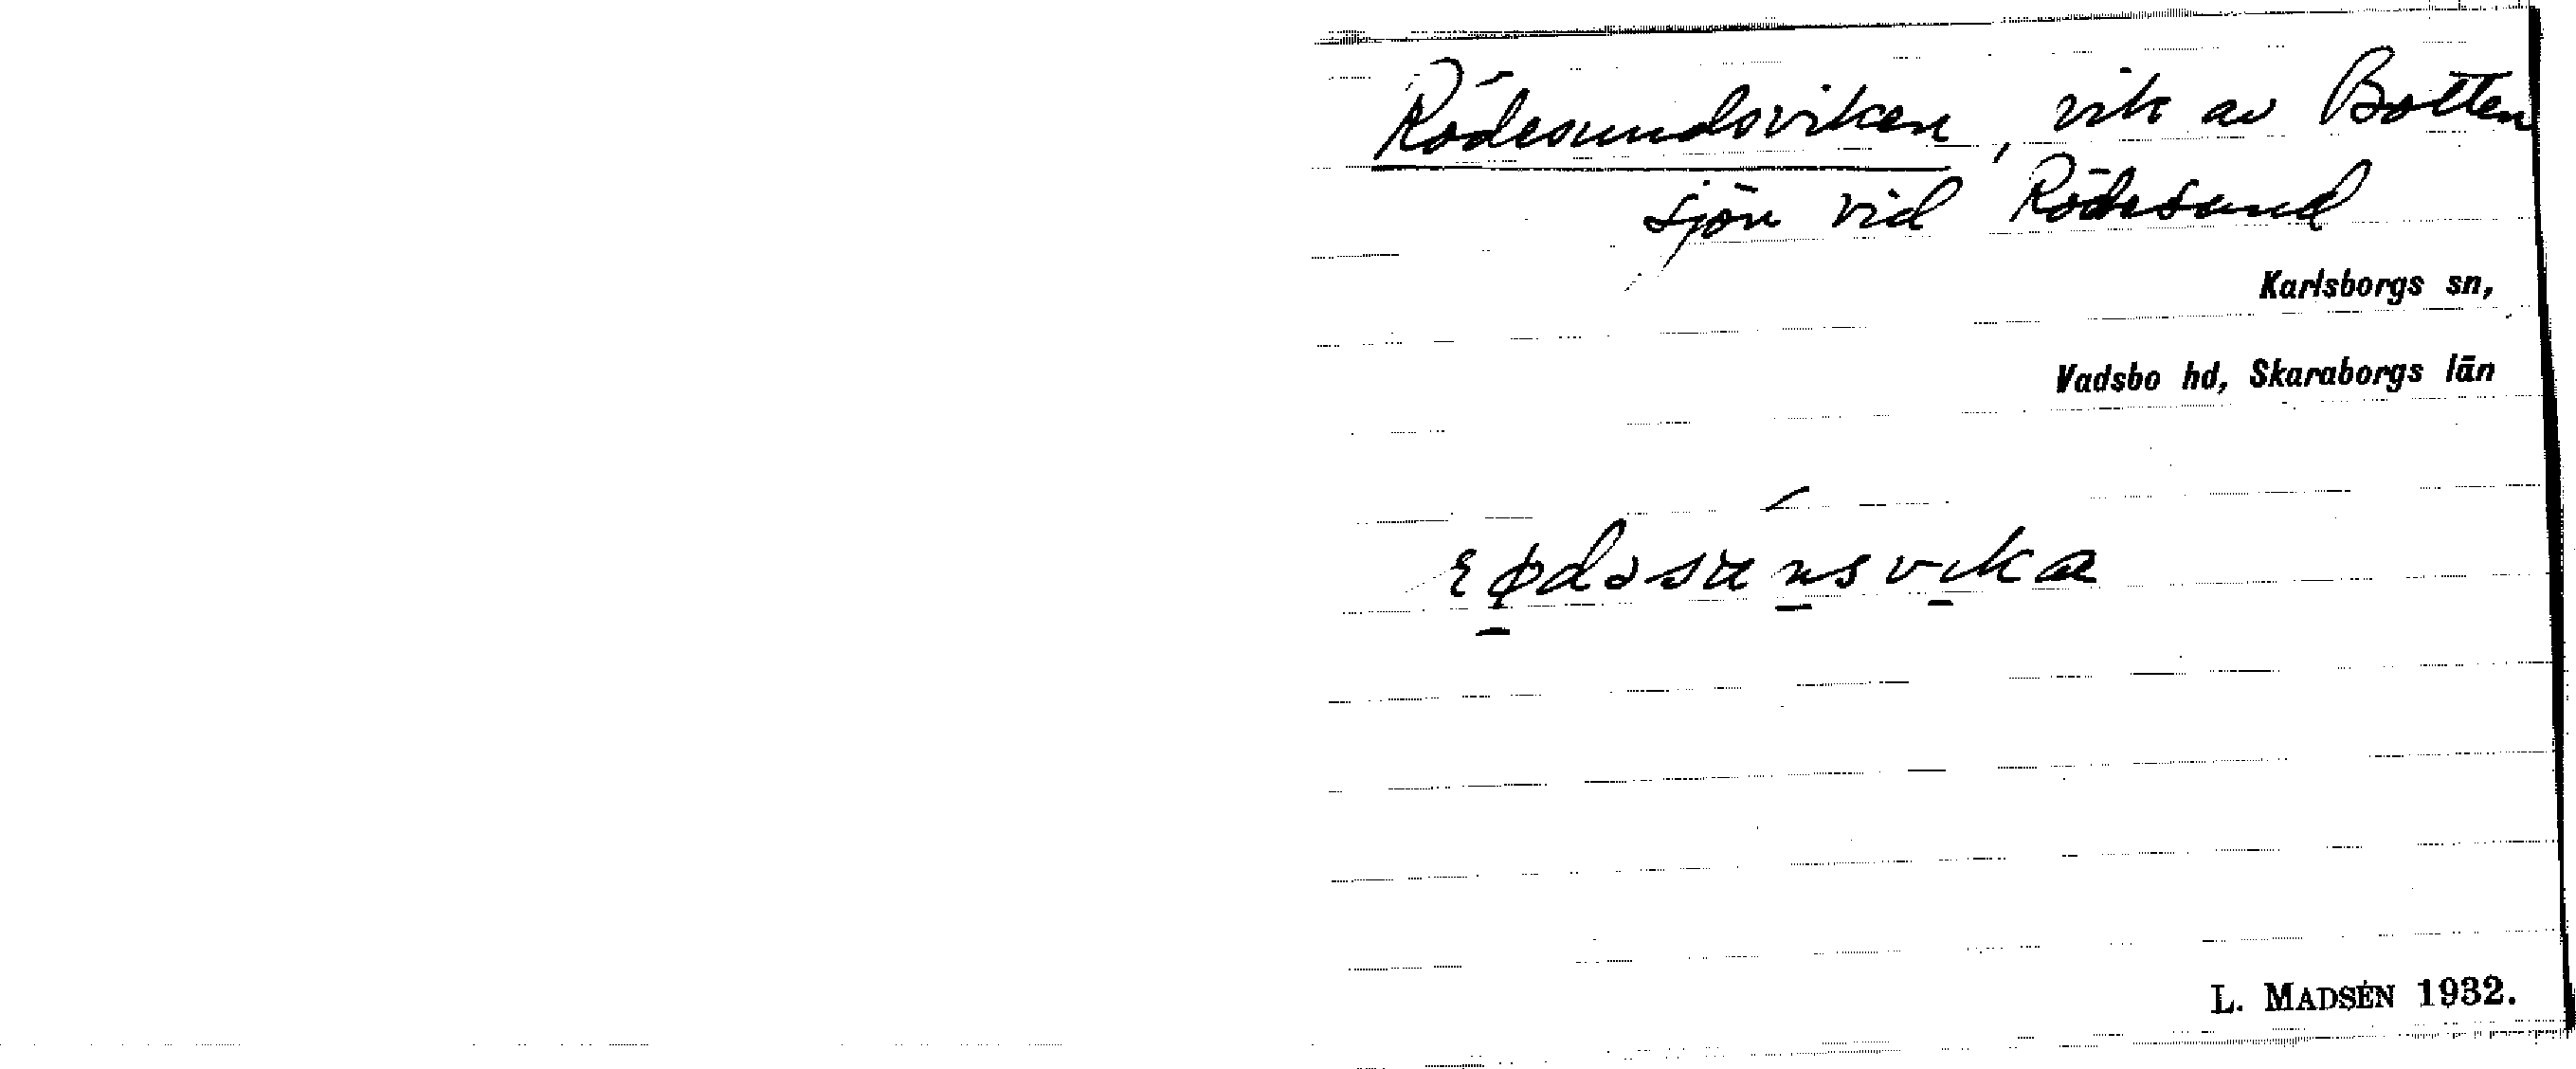 Rödesundsviken, vik av Botten
sjön vid Rödesund
Karlsborgs sn,
Vadsbo hd, Skaraborgs län
L. MADSÉN 1932.